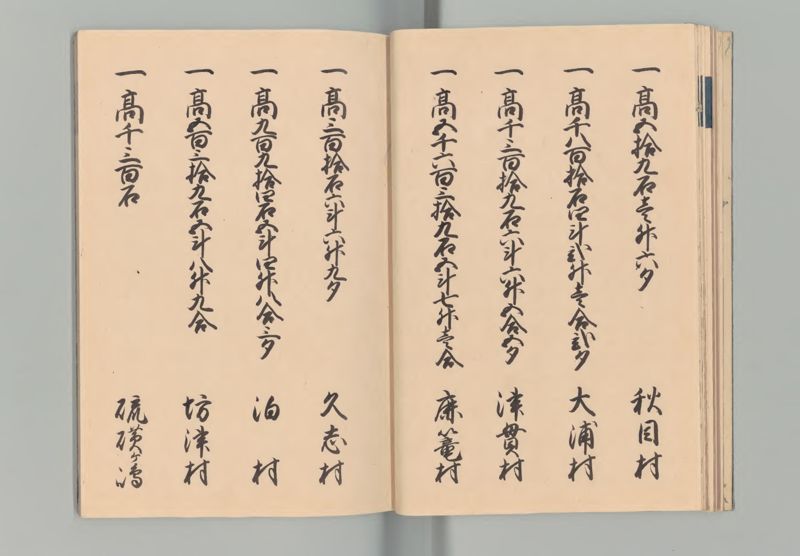 一高五拾九石壱升六夕 秋目村
一高千八百拾石四斗弐升壱合弐夕 大浦村
一高千三百拾九石六斗六升五合五夕 津貫村
一高五千六百三拾九石五斗七升壱合 麻篭村
一高三百拾石六斗六升九夕 久志村
一高九百九拾四石五斗四升八合三夕 泊村
一高五百三拾九石五斗八升九合 坊津村
一高千三百石 硫磺ヶ嶋